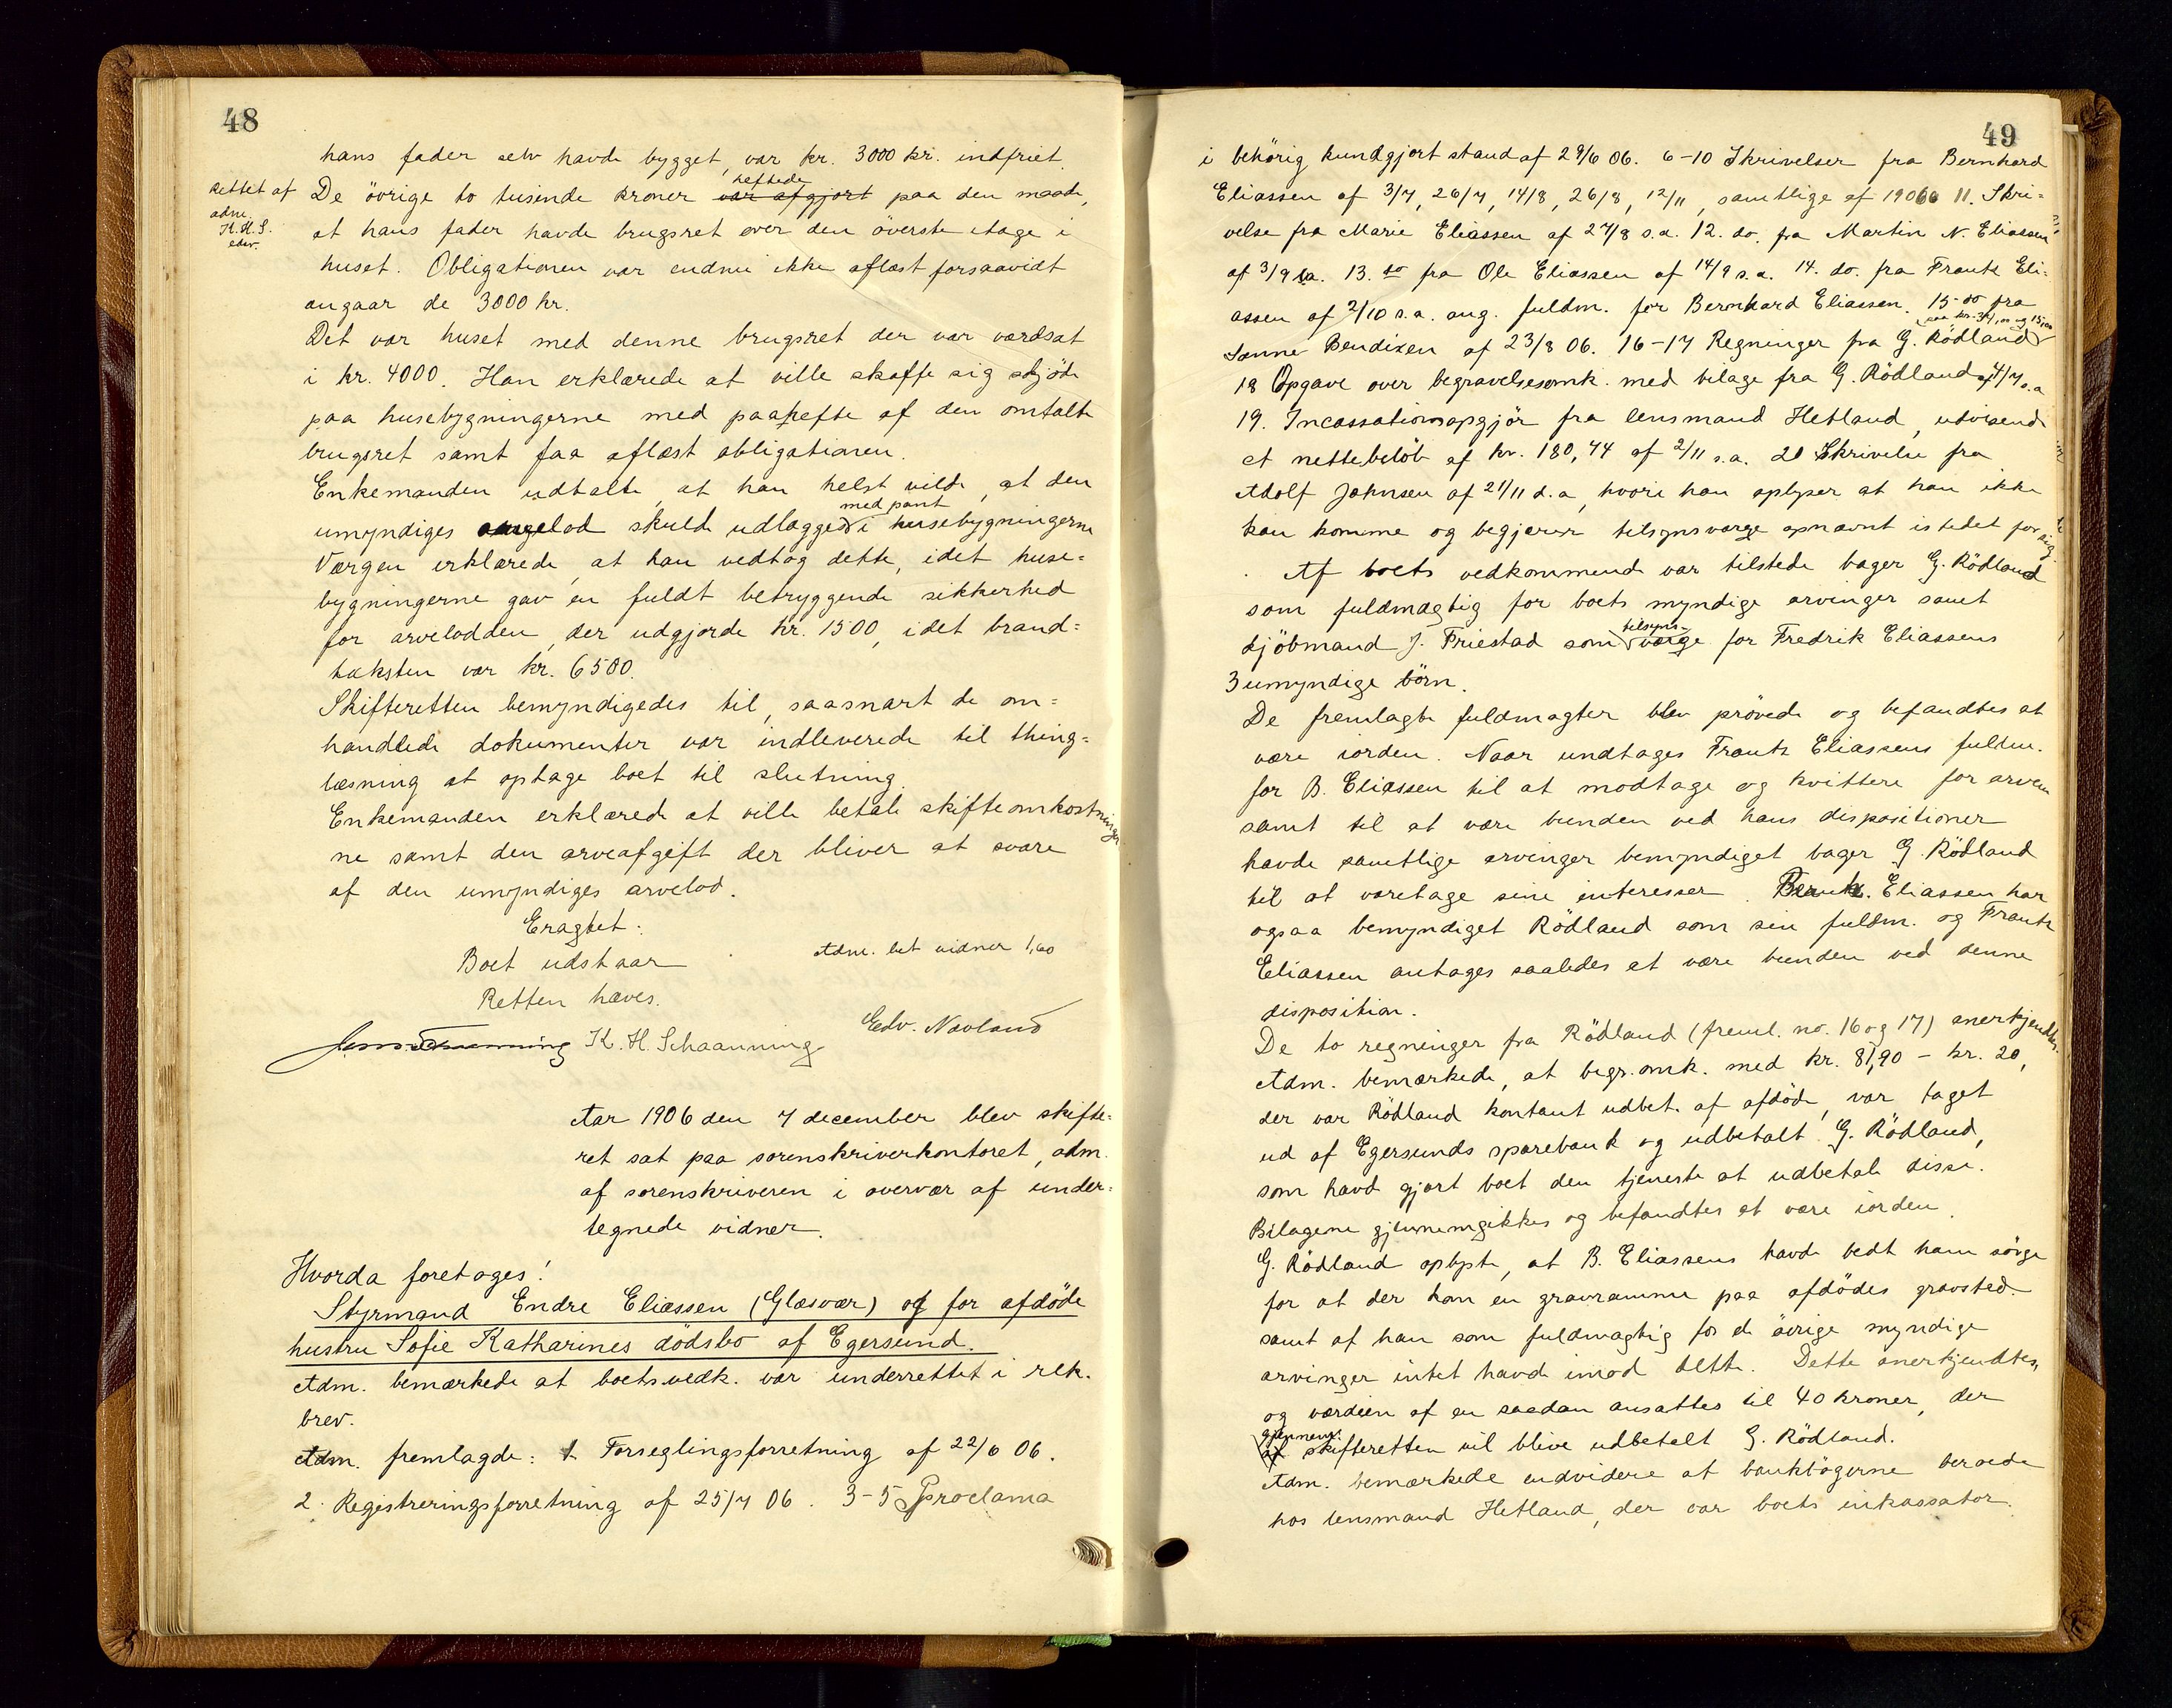 48
hans fader selv havde bygget, var kr. 3000 kr. indfriet.
Rettet af
adm.
K.H.S.
edv.
heftede
De övrige to tusinde kroner var afgjort paa den maade,
at hans fader havde brugsret over den överste etage i
huset. Obligationen var endnu ikke aflæst forsaavidt
angaar de 3000 kr.
Det var huset med denne brugsret der var værdsat
i kr. 4000. Han erklærede at ville skaffe sig skjöde
paa husebygningerne med paahefte af den omtalte
brugsret samt faa aflæst obligationen.
Enkemanden udtalte, at han helst vilde, at den
med pant
umyndiges arvelod skulde udlægges i husebygningerne
Værgen erklærede, at han vedtog dette, idet huse=
bygningerne gav en fuldt betryggende sikkerhed
for arvelodden, der udgjorde kr. 1500, idet brand=
taksten var kr. 6500.
Skifteretten bemyndigedes til, saasnart de om=
handlede dokumenter var indleverede til thing=
læsning at optage boet til slutning.
Enkemanden erklærede at ville betale skifteomkostninger
ne samt den arveafgift der bliver at svare
af den umyndiges arvelod.
Eragtet:
Boet udstaar
Adm. bet vidner 1,60
Retten hæves.
K. H. Schaanning
Edv. Navland
Aar 1906 den 7 december blev skifte=
ret sat paa sorenskriverkontoret, adm.
af sorenskriveren i overvær af under=
tegnede vidner.
Hvorda foretages!
Styrmand Endre Eliassen (Glasvær) og for afdöde
hustru Sofie Katharines dödsbo af Egersund.
Adm. bemærkede at boets vedk. var underrettet i rek.
brev.
Adm. fremlagde: 1 Forseglingsforretning af 22/6 06.
2. Registreringsforretning af 25/7 06. 3-5 Proclama
49
i behörig kundgjort stand af 29/6 06. 6-10 Skrivelser fra Bernhard
Eliassen af 3/7, 26/7, 14/8, 26/8, 12/11, samtlige af 1906 11. Skri=
velse fra Marie Eliassen af 27/8 s.a. 12. do. fra Martin N. Eliassen
af 3/9 s.a. 13. do fra Ole Eliassen af 14/9 s.a. 14. do. fra Frantz Eli=
assen af 2/10 s.a. ang. fuldm. for Bernhard Eliassen. 15 do fra
Sanne Bendixen af 23/8 06. 16-17 Regninger fra G. Rödland
18 Opgave over begravelsesomk. med bilage fra G. Rödland af 4/7 s.a
19. Incassationsopgjör fra lensmand Hetland, udvisende
et nettobelöb af kr. 180,44 af 2/11 s.a. 20 Skrivelse fra
Adolf Johnsen af 21/11 d.a, hvori han oplyser at han ikke
kan komme og begjærer tilsynsværge opnævnt istedet for sig.
Af boets vedkommende var tilstede bager G. Rödland
som fuldmægtig for boets myndige arvinger samt
tilsyns-
kjöbmand J. Friestad som værge for Fredrik Eliassens
3 umyndige börn.
De fremlagte fuldmagter blev prövede og befandtes at
være iorden. Naar undtages Frantz Eliassens fuldm.
for B. Eliassen til at modtage og kvittere for arven
samt til at være bunden ved hans dispositioner
havde samtlige arvinger bemyndiget bager G. Rödland
til at varetage sine interesser. Bernh. Eliassen har
ogsaa bemyndiget Rödland som sin fuldm. og Frantz
Eliassen antages saaledes at være bunden ved denne
disposition.
De to regninger fra Rödland (freml. no. 16 og 17) anerkjendtes.
Adm. bemærkede, at begr. omk. med kr. 81,90 - kr. 20,
der var Rödland kontant udbet. af afdöde, var taget
ud af Egersunds sparebank og udbetalt G. Rödland,
som havde gjort boet den tjeneste at udbetale disse.
Bilagene gjennemgikkes og befandtes at være iorden.
G. Rödland oplyste, at B. Eliassens havde bedt ham sörge
for at der kom en gravramme paa afdödes gravsted
samt at han som fuldmægtig for de övrige myndige
arvinger intet havde imod dette. Dette anerkjendtes,
og værdien af en saadan ansattes til 40 kroner, der
gjennem
af skifteretten vil blive udbetalt G. Rödland.
Adm. bemærkede endvidere at bankbögerne beroede
hos lensmand Hetland, der var boets inkassator.